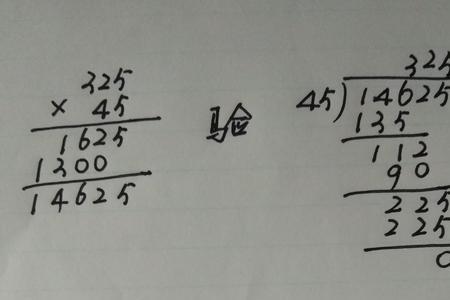 325
× 45
1625
1300
14625
验
325
45)14625
135
112
90
225
225
0